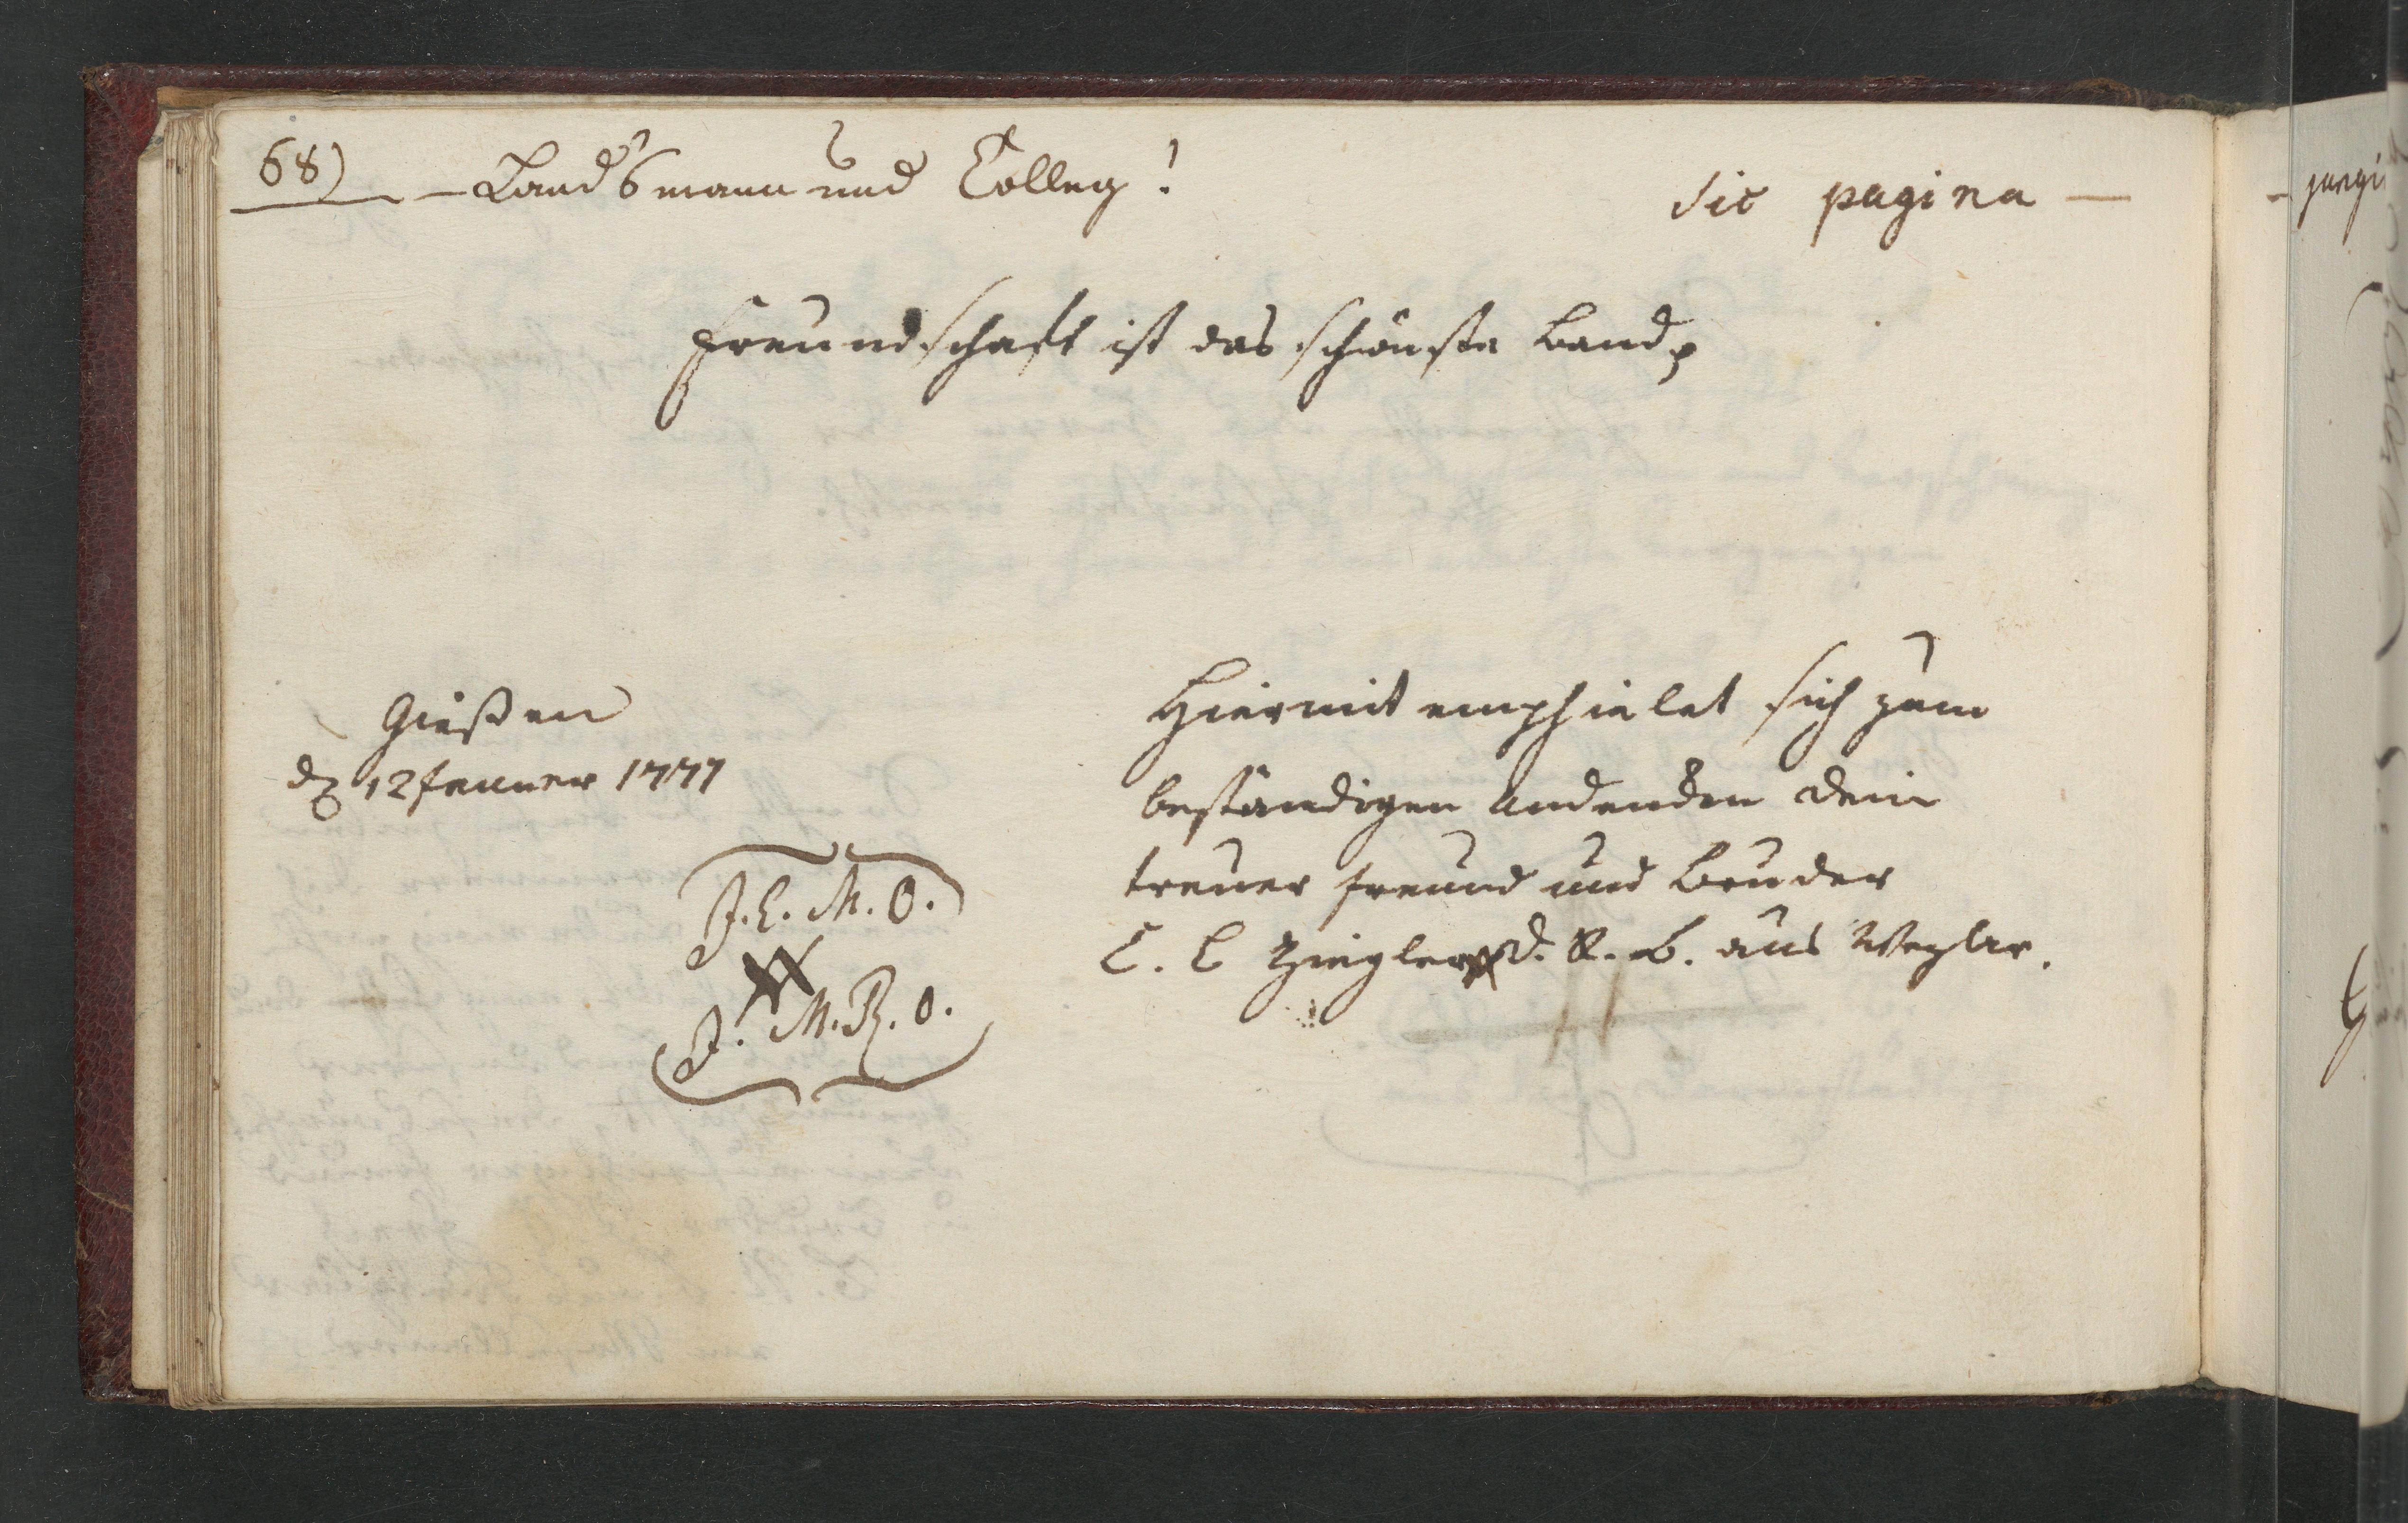 68) – Landsmann und Colleg!
sic pagina —
Freundschaft ist das schönste Band
Gießen
d 12 Jenner 1777
J. L. M. O.
J. M. R. O.
Hiermit emphielet sich zum
beständigen Andencken dein
treuer Freund und Bruder
C. C Ziegler d. R. b. aus Wezlar.
jungi